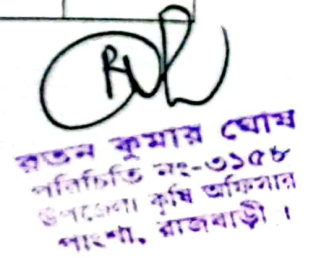 রতন কুমার ঘোষ
পরিচিতি নং-৩১৫৮
উপজেলা কৃষি অফিসার
পাংশা, রাজবাড়ী ।